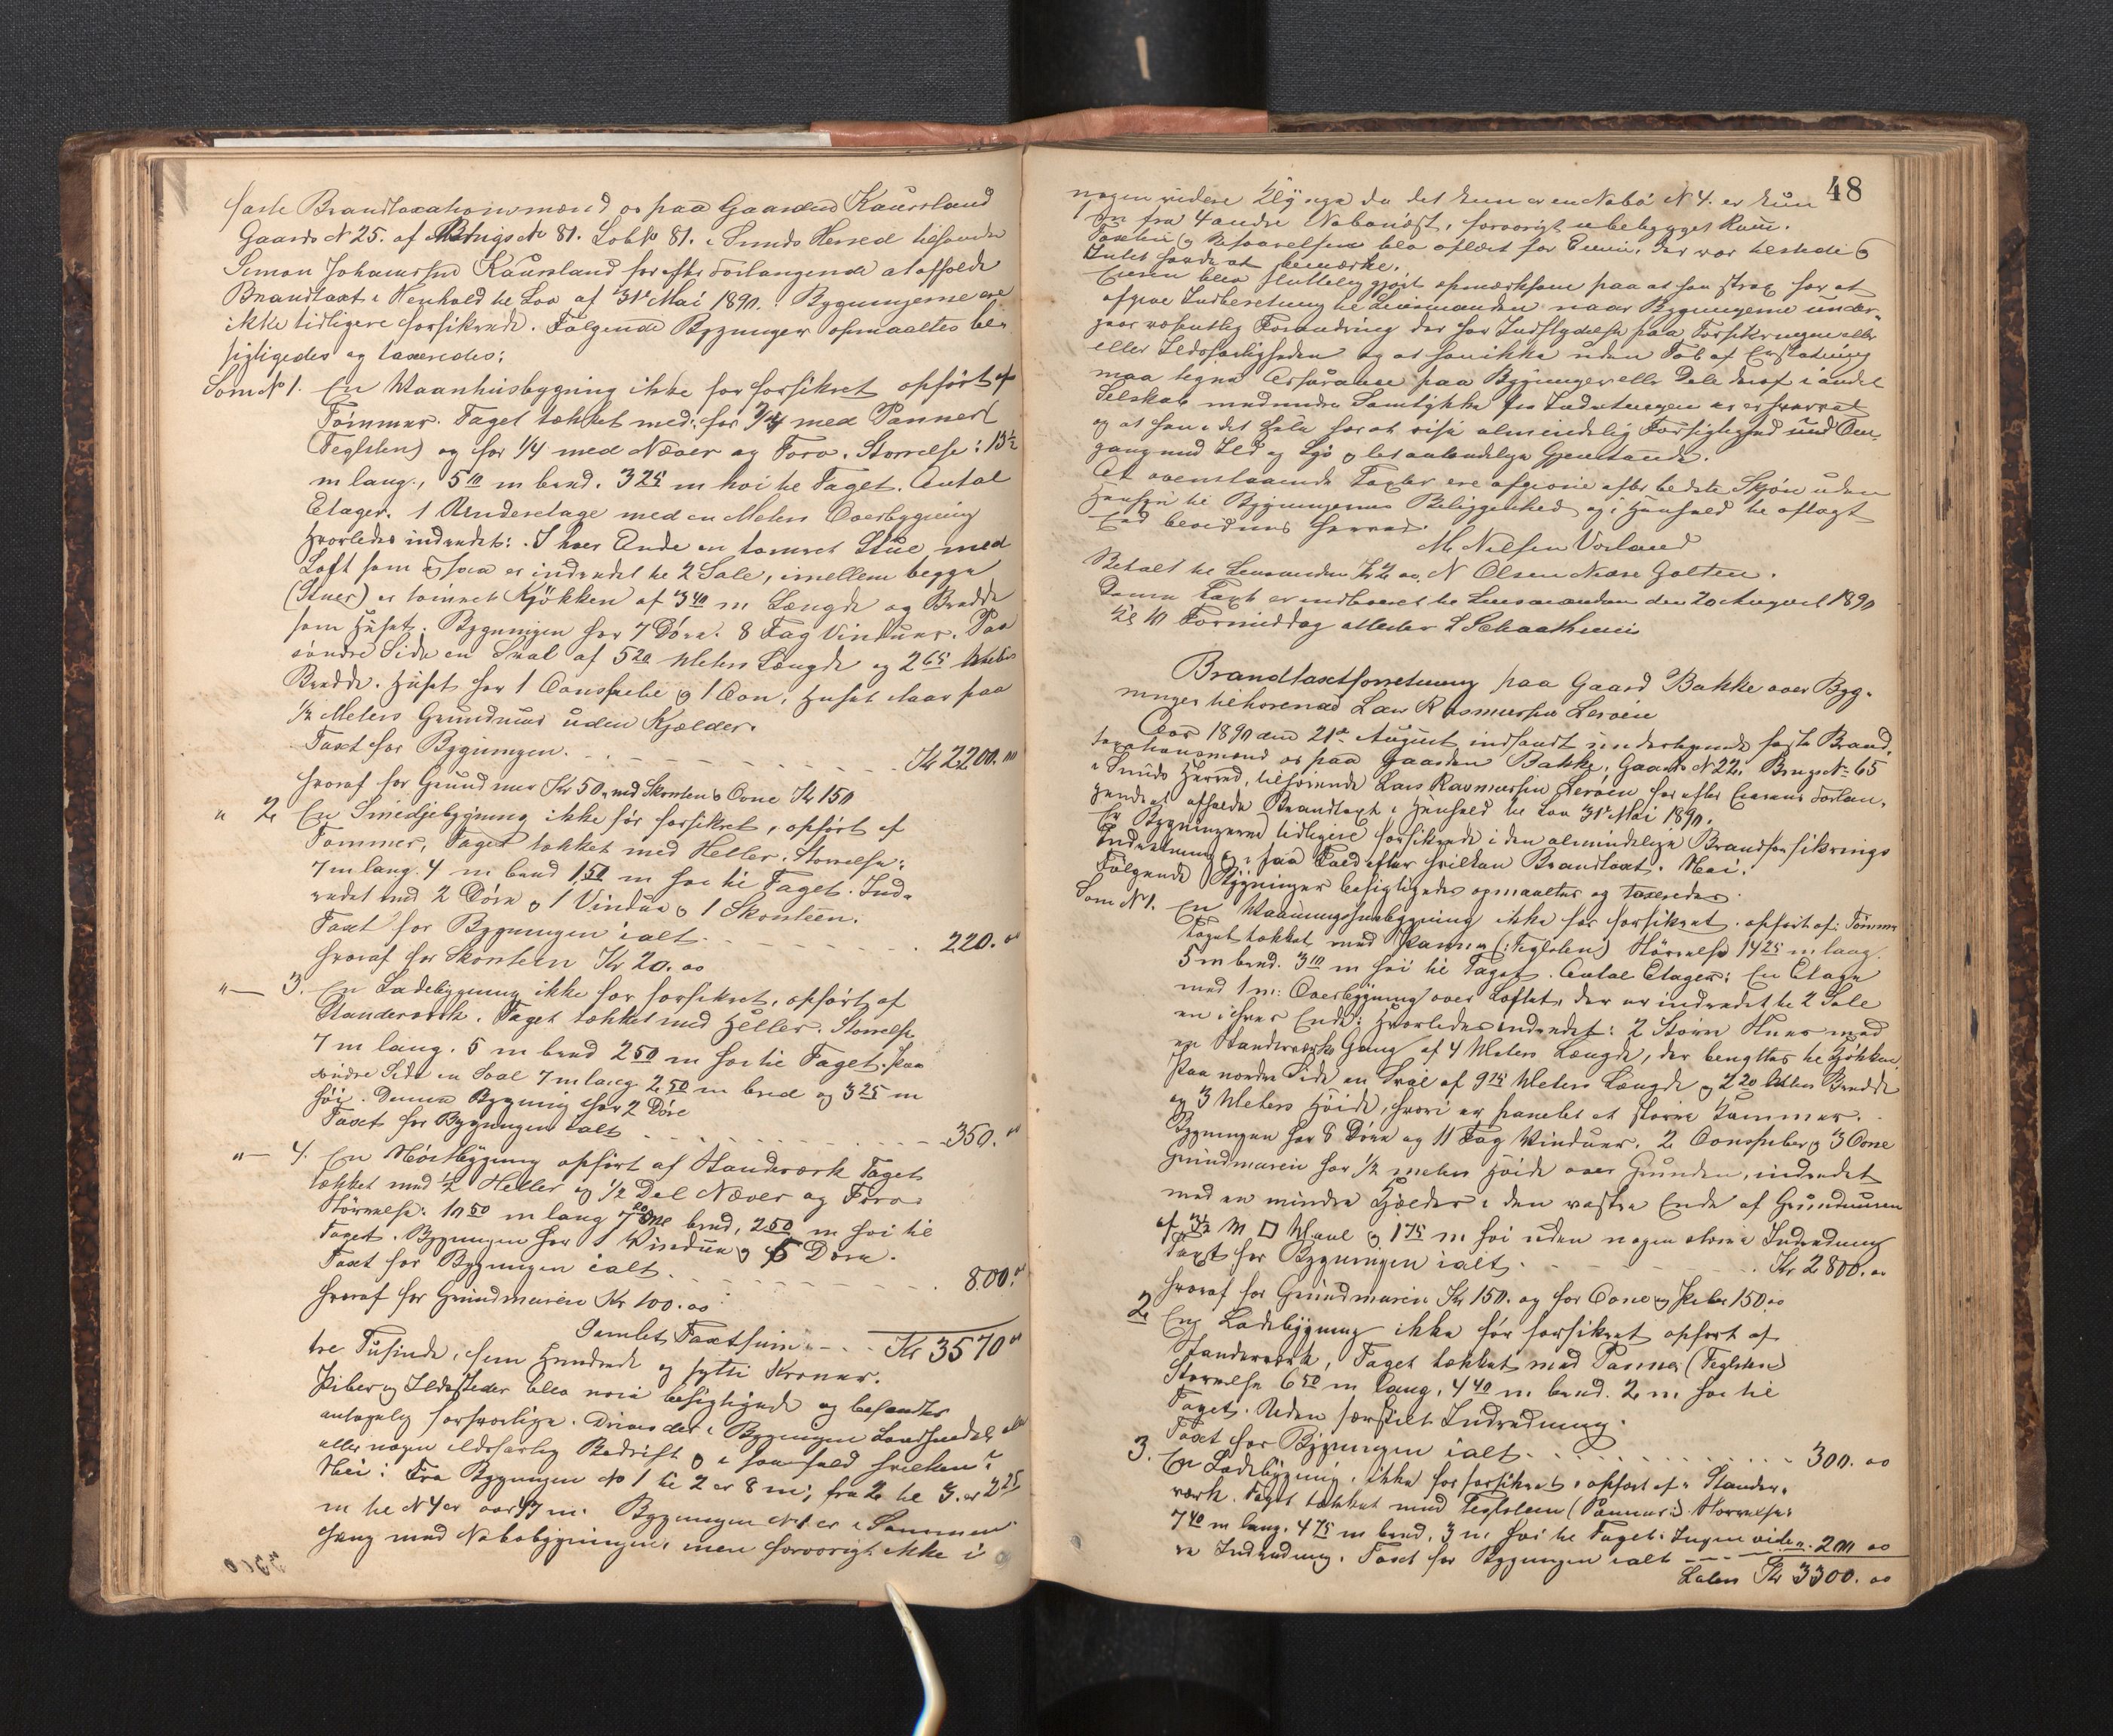 faste Brandtaxationsmænd os paa Gaarden Kausland
Gaards N 25. af Brugs № 81. Løb № 81. i Sunds Herred tilhørende
Simon Johannesen Kausland for efter Forlangende at afholde
Brandtaxt i Henhold til Lov af 31te Mai 1890. Bygningerne ere
ikke tidligere forsikrede. Følgende Bygninger opmaaltes be-
sigtigedes og taxeredes:
Som № 1. En Vaanhusbygning ikke før forsikret opført af
Tømmer. Taget tækket med: for 3/4 med Panner
(Teglsten) og for 1/4 med Næver og Torv. Størrelse: 13½
m lang, 5 10 m bred. 3 25 m høi til Taget. Antal
Etager. 1 Underetage med en Meters Overbygning
Hvorledes indredet: I hver Ende en tømret Stue med
Loft som er indredet til 2 Sale, imellem begge
(Stuer) er tømret Kjøkken af 3 40 m Længde og Bredde
som Huset. Bygningen har 7 Døre. 8 Fag Vinduer. Paa
søndre Side en Sval af 5 20 Meters Længde og 2 65 Meters
Bredde. Huset har 1 Ovnspibe og 1 Ovn, Huset staar paa
½ Meters Grundmur uden Kjælder.
Taxt for Bygningen. Kr 2200.00
hvoraf for Grundmur Kr 50, med Skorsten & Ovne Kr 150
" 2 En Smedjebygning ikke før forsikret, opført af
Tømmer, Taget tækket med Heller. Størrelse:
7 m lang. 4 m bred 1,50 m høi til Taget. Ind-
redet med 2 Døre og 1 Vindue og 1 Skorsten.
Taxt for Bygningen ialt 220.00
hvoraf for Skorsten Kr 20.00
"— 3. En Ladebygning ikke før forsikret, opført af
Standerværk. Taget tækket med Heller. Størrelse
7 m lang. 5 m bred 2 50 m høi til Taget. Paa
søndre Side en Sval 7 m lang 2 50 m bred og 3 25 m
høi. Denne Bygning har 2 Døre
Taxt for Bygningen ialt 350.00
"— 4. En Nøstbygning opført af Standerværk Taget
tækket med ½ Heller og ½ Del Næver og Torv.
Størrelse: 10 50 m lang 7 20 m bred, 2 50 m høi til
Taget. Bygningen har 1 Vindue og 5 Døre.
Taxt for Bygningen ialt 800.00
hvoraf for Grundmuren Kr 100.00
Samlet Taxtsum Kr 3570 00
tre Tusinde, fem Hundrede og sytti Kroner.
Piber og Ildsteder blev nøie besigtigede og befandtes
antagelig forsvarlige. Drives der i Bygningen Landhandel eller
eller nogen ildsfarlig Bedrift og i saa fald hvilken?
Nei: Fra Bygningen № 1 til 2 er 8 m, fra 2 til 3. er 2 25
m til N 4 er over 47 m. Bygningen № 1 er i Sammen-
hæng med Nabobygningen, men forøvrigt ikke i
48
nogen videre da det kun er en Nabo N 4. er kun
fra 4 andre Nabonøst, forøvrigt ubebygget Rum.
Taxten og Besvarelsen blev oplæst for Eieren, der var tilstede og
Intet havde at bemærke.
Eieren blev sluttelig gjort opmærksom paa at han strax har at
afgive Indberetning til Lensmanden naar Bygningerne under-
gaar væsentlig Forandring der har Indflydelse paa Forsikringen eller
eller Ildsfarligheden og at han ikke uden Tab af Erstatning
maa tegne Assurance paa Bygninger eller Dele deraf i andet
Selskab medmindre Samtykke fra Indretningen er erhvervet
og at han i det Hele har at vise almindelig Forsigtighed med Om-
gang med Ild og Lys og let antændelige Gjenstande.
At ovenstaaende Taxter ere afgivne efter bedste Skjøn uden
Hensyn til Bygningernes Beliggenhed og i Henhold til aflagt
Ed bevidnes herved.
M. Nilsen Vorland
Betalt til Lensmanden Kr 2,00. N Olsen Nære Golten.
Denne Taxt er indleveret til Lensmanden den 20 August 1890
Kl 10 Formiddag attester L Schaathun
Brandtaxtforretning paa Gaard Bakke over Byg-
ninger tilhørende Lars Rasmussen Lerøen
Aar 1890 den 21de August indfandt undertegnede faste Brand-
taxationsmænd os paa Gaarden Bakke, Gaards № 22, Brugs № 65
i Sunds Herred, tilhørende Lars Rasmussen Lerøen for efter Eierens Forlan-
gende at afholde Brandtaxt i Henhold til Lov 31te Mai 1890.
Er Bygningerne tidligere forsikrede i den almindelige Brandforsikrings
Indretning og i saa Fald efter hvilken Brandtaxt. Nei.
Følgende Bygninger besigtigedes opmaaltes og taxeredes.
Som № 1. En Vaaningshusbygning ikke før forsikret. opført af: Tømmer
Taget tækket med Panner (: Teglsten) Størrelse 14 25 m lang.
5 m bred. 3 10 m høi til Taget. Antal Etager: En Etage
med 1 m: Overbygning over Loftet, der er indredet til 2 Sale
en i hver Ende: Hvorledes indredet: 2 Større Stuer med
en Standerværks Gang af 4 Meters Længde, der benyttes til Kjøkken.
Paa nordre Side en Sval af 9 75 Meters Længde og 2 20 Meters Bredde
og 3 Meters Høide, hvori er panelet et større Kammer.
Bygningen har 8 Døre og 11 Fag Vinduer. 2 Ovnspiber og 3 Ovne
Grundmuren har ½ meters Høide over Grunden, indredet
med en mindre Kjælder i den vestre Ende af Grundmuren
af 3½ M □ Maal og 1 75 m høi uden nogen større Indredning
Taxt for Bygningen ialt Kr 2800.00
hvoraf for Grundmuren Kr 150. og for Ovne og Piber 150.00
2 En Ladebygning ikke før forsikret opført af
Standerværk, Taget tækket med Panner (Teglsten)
Størrelse 6 50 m lang, 4 40 m bred. 2 m høi til
Taget. Uden særskilt Indredning.
Taxt for Bygningen ialt 300.00
3. En Ladebygning, ikke før forsikret, opført af Stander-
værk. Taget tækket med Teglsten (Panner) Størrelse:
7 40 m lang. 4 75 m bred. 3 m høi til Taget. Ingen vide-
re Indredning. Taxt for Bygningen ialt 200 00
Lates Kr 3300.00